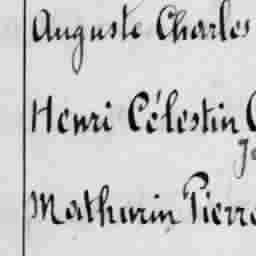 Auguste Charles
Henri Célestin
Mathurin Pierre